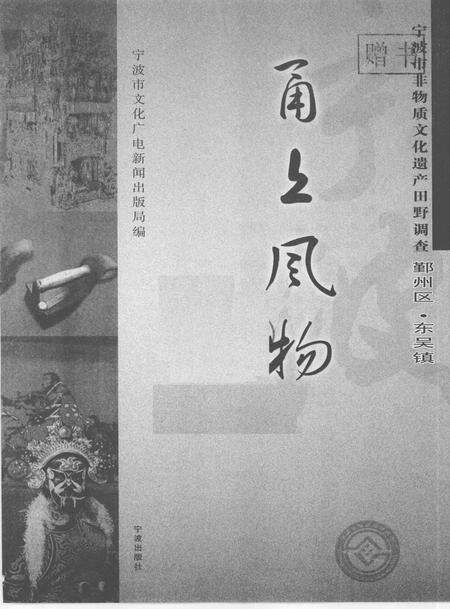 宁波市非物质文化遗产田野调查
鄞州区·东吴镇
甬上风物
宁波市文化广电新闻出版局编
宁波出版社